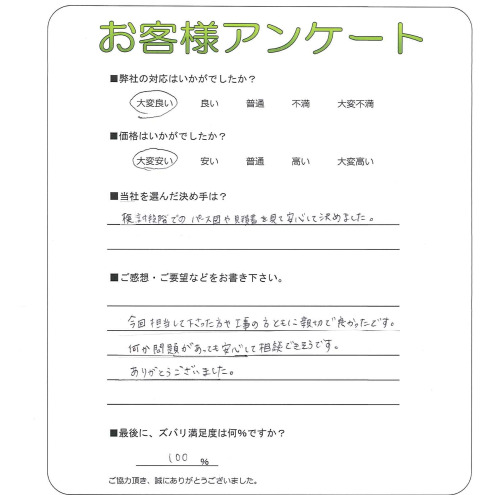 お客様アンケート
■弊社の対応はいかがでしたか？
大変良い 良い 普通 不満 大変不満
■価格はいかがでしたか？
大変安い 安い 普通 高い 大変高い
■当社を選んだ決め手は？
検討段階でのパース図や見積書を見て安心して決めました。
■ご感想・ご要望などをお書き下さい。
今回担当して下さった方や工事の方ともに親切で良かったです。
何か問題があっても安心して相談できそうです。
ありがとうございました。
■最後に、ズバリ満足度は何%ですか？
100 %
ご協力頂き、誠にありがとうございました。